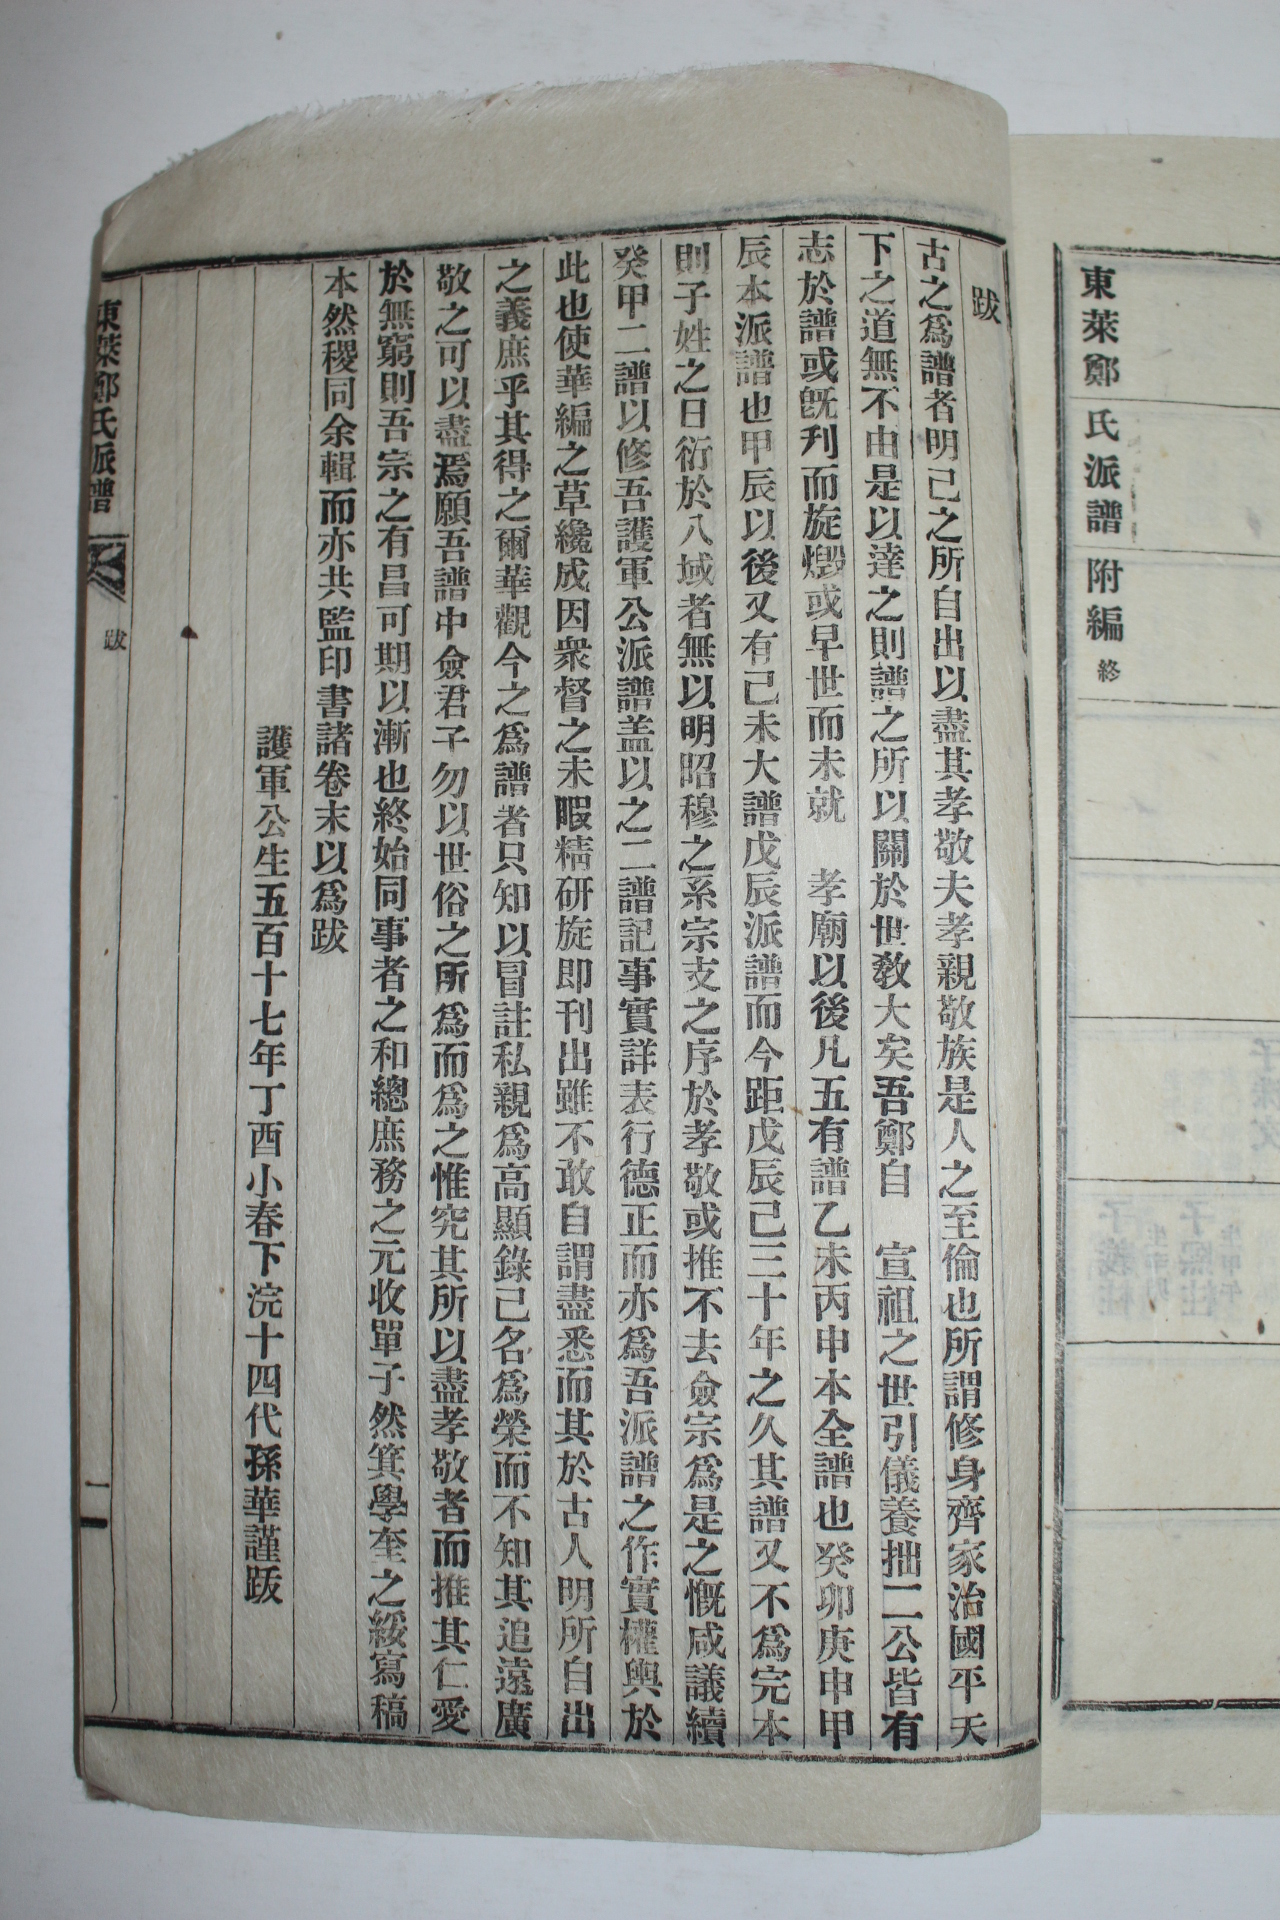 東萊鄭氏派譜附編 終
跋
古之爲譜者明己之所自出以盡其孝敬夫孝親敬族是人之至倫也所謂修身齊家治國平天
下之道無不由是以達之則譜之所以關於世敎大矣吾鄭自 宣祖之世引儀養拙二公皆有
志於譜或旣刋而旋燬或早世而未就 孝廟以後凡五有譜乙未丙申本全譜也癸卯庚申甲
辰本派譜也甲辰以後又有己未大譜戊辰派譜而今距戊辰已三十年之久其譜又不爲完本
則子姓之日衍於八域者無以明昭穆之系宗支之序於孝敬或推不去僉宗爲是之慨咸議續
癸甲二譜以修吾護軍公派譜盖以之二譜記事實詳表行德正而亦爲吾派譜之作實權輿於
此也使華編之草纔成因衆督之未暇精研旋即刊出雖不敢自謂盡悉而其於古人明所自出
之義庶乎其得之爾華觀今之爲譜者只知以冒註私親爲高顯錄己名爲榮而不知其追遠廣
敬之可以盡焉願吾譜中僉君子勿以世俗之所爲而爲之惟究其所以盡孝敬者而推其仁愛
於無窮則吾宗之有昌可期以漸也終始同事者之和總庶務之元收單子然箕學奎之綏寫稿
本然稷同余輯而亦共監印書諸卷末以爲跋
護軍公生五百十七年丁酉小春下浣十四代孫華謹跋
東萊鄭氏派譜 跋 一